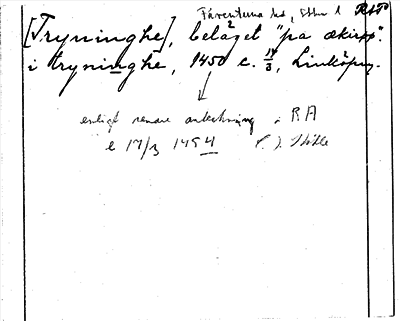 Färentuna hd, Sthm l
[Tryninghe], beläget "pa ækirø".
i tryninghe, 1450 e. 17/3, Linköping.
enligt senare anteckning i RA
e 17/3 1454